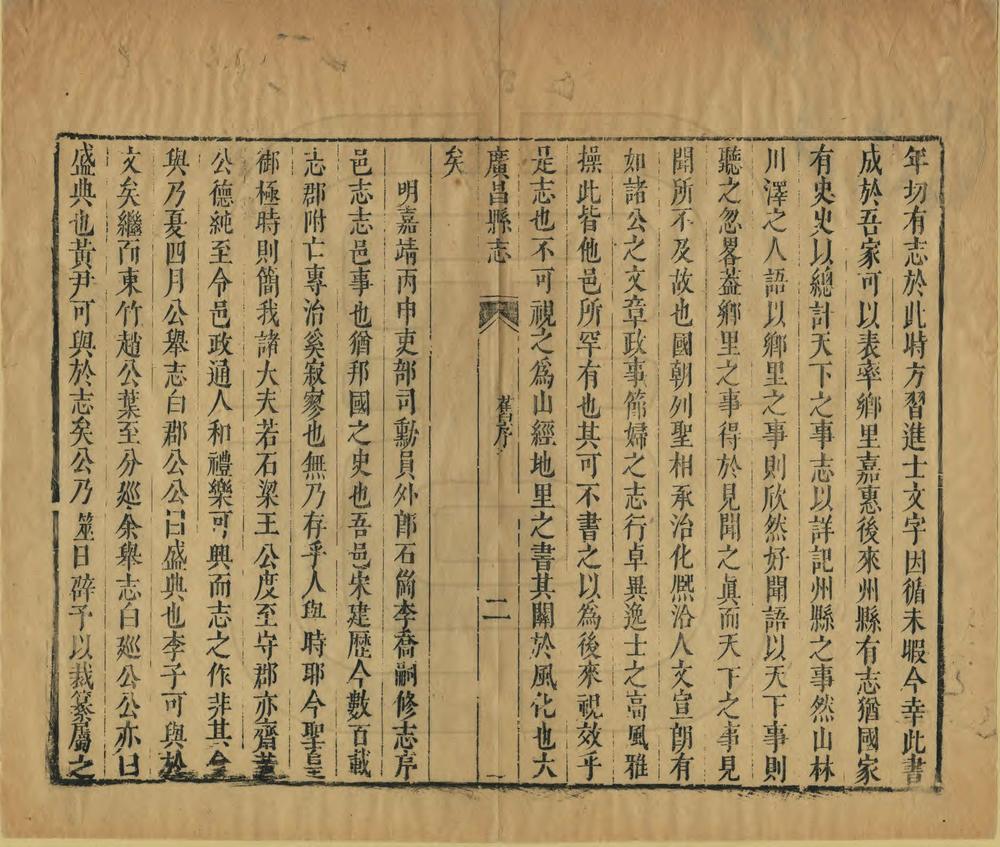 年切有志於此時方習進士文字因循未暇今幸此書
成於吾家可以表率鄉里嘉惠後來州縣有志猶國家
有史史以總計天下之事志以詳記州縣之事然山林
川澤之人語以鄉里之事則欣然好聞語以天下事則
聽之忽畧葢鄉里之事得於見聞之眞而天下之事見
聞所不及故也國朝列聖相承治化熈洽人文宣朗有
如諸公之文章政事節婦之志行卓異逸士之高風雅
操此皆他邑所罕有也其可不書之以為後來視效乎
是志也不可視之爲山經地里之書其關於風化也大
廣昌縣志
舊序
二
矣
明嘉靖丙申吏部司勳員外郎石崗李喬嗣修志序
邑志志邑事也猶邦國之史也吾邑宋建歷今數百載
志郡附亡專治奚寂寥也無乃存乎人與時耶今聖皇
御極時則簡我諸大夫若石梁王公度至守郡亦齋
公德純至令邑政通人和禮樂可興而志之作非其會
與乃夏四月公舉志白郡公公曰盛典也李子可與於
文矣繼而東竹趙公葉至分廵余舉志白廵公公亦曰
盛典也黃尹可與於志矣公乃筮日辟予以裁纂屬之